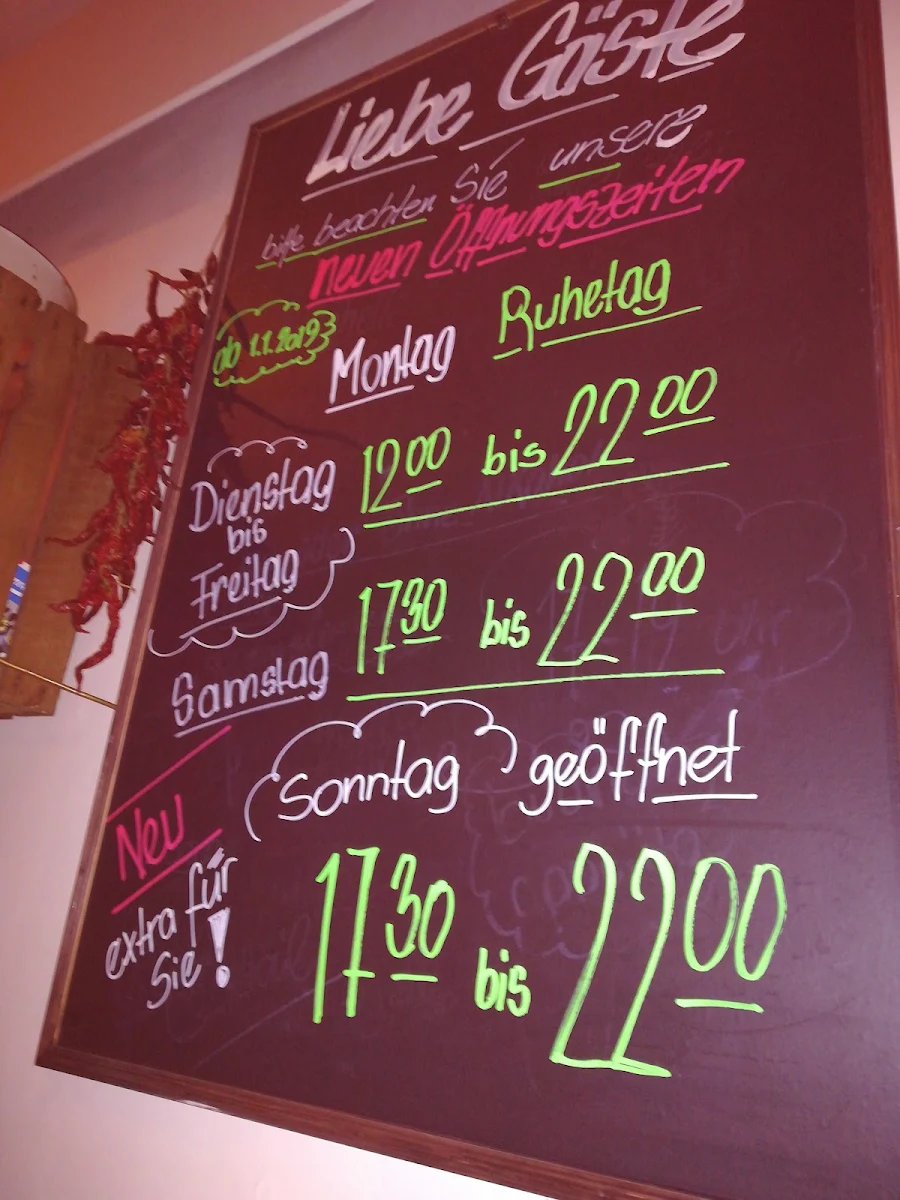 Liebe Gäste
bitte beachten Sie unsere
neuen Öffnungszeiten
ab 1.1.2019
Montag Ruhetag
Dienstag
bis
Freitag
12 00 bis 22 00
Samstag
17 30 bis 22 00
Neu
extra für
Sie!
Sonntag geöffnet
17 30 bis 22 00